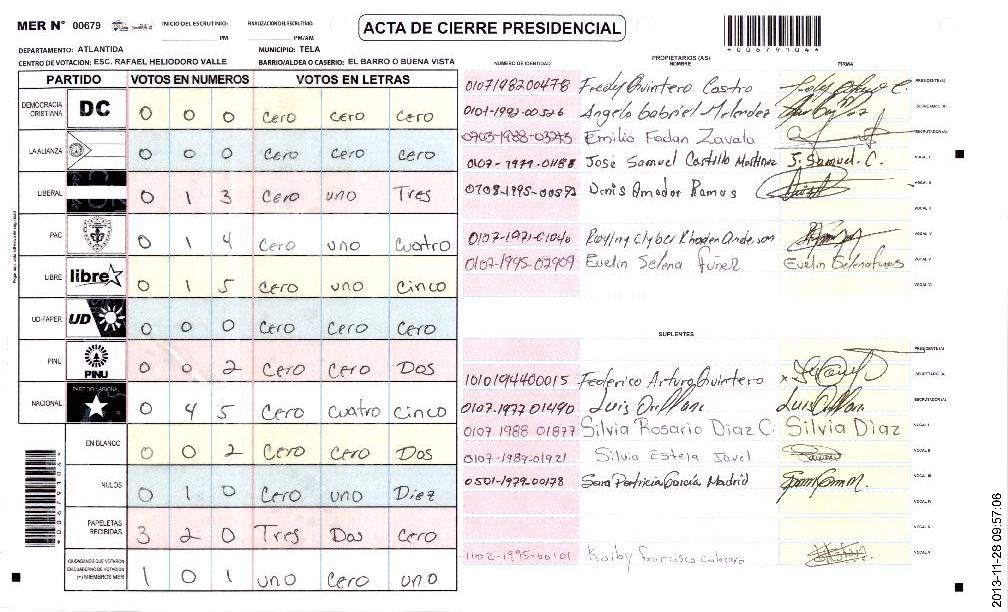 MER N° 00679 INICIO DEL ESCRUTINIO: FINALIZACION DEL ESCRUTINIO: ACTA DE CIERRE PRESIDENCIAL
PM PM/AM
DEPARTAMENTO: ATLANTIDA MUNICIPIO: TELA
CENTRO DE VOTACION: ESC. RAFAEL HELIODORO VALLE BARRIO/ALDEA O CASERIO: EL BARRO O BUENA VISTA
*00679104*
PARTIDO VOTOS EN NUMEROS VOTOS EN LETRAS
DEMOCRACIA CRISTIANA DC 0 0 0 Cero Cero Cero
LA ALIANZA 0 0 0 Cero Cero Cero
LIBERAL 0 1 3 Cero uno Tres
PAC 0 1 4 Cero uno Cuatro
LIBRE libre 0 1 5 Cero uno Cinco
UD-FAPER UD 0 0 0 Cero Cero Cero
PINU PINU 0 0 2 Cero Cero Dos
NACIONAL PARTIDO NACIONAL 0 4 5 Cero Cuatro Cinco
EN BLANCO 0 0 2 Cero Cero Dos
NULOS 0 1 0 Cero uno Diez
PAPELETAS RECIBIDAS 3 2 0 Tres Dos Cero
CIUDADANOS QUE VOTARON EN CUADERNO DE VOTACION (+) MIEMBROS MER 1 0 1 uno Cero uno
PROPIETARIOS (AS)
NUMERO DE IDENTIDAD NOMBRE FIRMA
0107198200478 Fredy Quintero Castro PRESIDENTE(A)
0101-1992-00526 Angelo Gabriel Melendez SECRETARIO (A)
0703-1988-03273 Emilio Fadan Zavala ESCRUTADOR(A)
0107-1979-01188 Jose Samuel Castillo Martinez J. Samuel. C. VOCAL I
0708-1995-00592 Denis Amador Ramos VOCAL II
VOCAL III
0107-1971-01040 VOCAL IV
0107-1995-02909 Evelin Selena Funez Evelin Selena funes VOCAL V
VOCAL VI
SUPLENTES
PRESIDENTE(A)
1010194400015 Federico Arturo Quintero SECRETARIO (A)
0107-1977 01490 Luis Orellana ESCRUTADOR(A)
0107 1988 01877 Silvia Rosario Diaz C. Silvia Diaz VOCAL I
0107-1989-01921 Silvia Estela VOCAL II
0501-1979-00178 Sara Patricia Garcia Madrid VOCAL III
VOCAL IV
VOCAL V
1102-1995-00101 VOCAL VI
2013-11-28 09:57:06